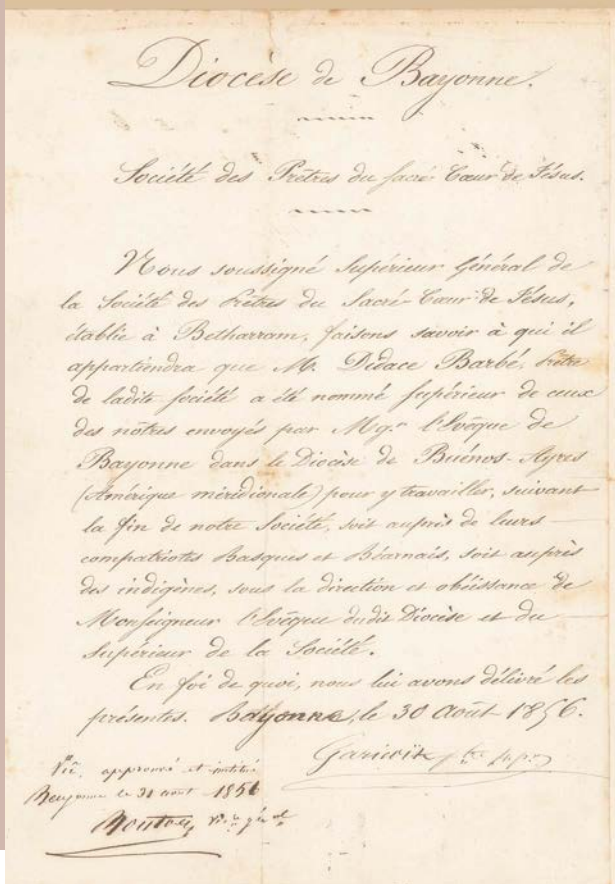 Diocèse de Bayonne.
Société des Prêtres du Sacré Cœur de Jésus.
Nous soussigné Supérieur Général de
la Société des Prêtres du Sacré-Cœur de Jésus,
établie à Betharram, faisons savoir à qui il
appartiendra que M. Didace Barbé, Prêtre
de ladite Société a été nommé Supérieur de ceux
des nôtres envoyés par Mgr l'Evêque de
Bayonne dans le Diocèse de Buénos-Ayres
(Amérique méridionale) pour y travailler, suivant
la fin de notre Société, soit auprès de leurs
compatriotes Basques et Béarnais, soit auprès
des indigènes, sous la direction et obéissance de
Monseigneur l'Evêque dudit Diocèse et du
Supérieur de la Société.
En foi de quoi, nous lui avons délivré les
présentes. Bayonne, le 30 Août 1856.
Garicoïts ptre supr
Vu, approuvé et institué
Bayonne le 31 août 1856
vic. gén.